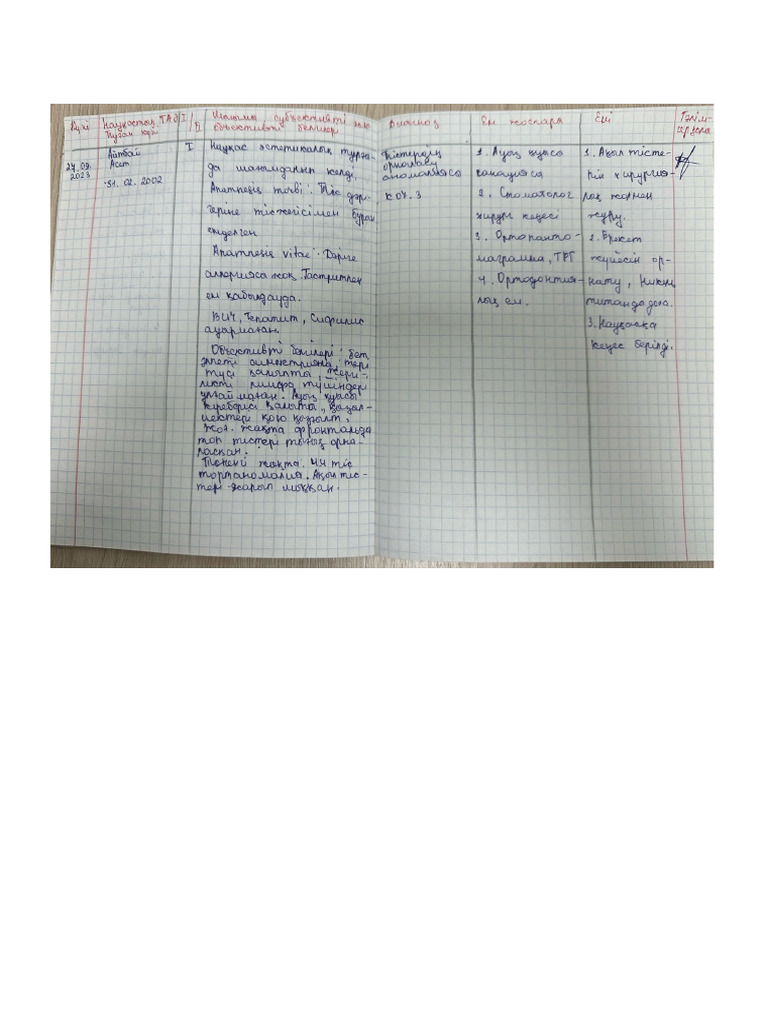 Күні
Науқастың ТАӘ
Туған күні
I/II
Шағымы субъективті және
объективті белгілер
Диагноз
Ем жоспары
Емі
Тәлім-
гер қолы
24.09.
2023
Айтбай
Асет
31.02.2002
I
Науқас эстетикалық тұрғы-
да шағымданып келді.
Анамнезіс morbi: Тіс дәрі-
геріне тіс жейісімен бұрын
емделген
Анамнезіс vitae: Дәріге
аллергияса жоқ. Гастритпен
ем қабылдауда.
ВИЧ, Гепатит, Сифилис
ауырмаған.
Объективті белгілері: бет
әлпеті симметриялы, тері
түсі қалыпты,
лимфа түйіндері
ұлғаймаған. Ауыз қуысы
кіреберісі қалыпты,
қою қызғылт,
Жоғ. жақта фронтальды
топ тістері тығыз орна-
ласқан.
Төменгі жақта. 44 тіс
тортоаномалия. Ақыл тіс-
тері жарып шыққан.
Тістердің
орналасу
аномалиясы
К 07.3
1. Ауыз қуысы
санацияса
2. Стоматолог
хирург кеңесі
3. Ортопанто-
мограмма, ТРГ
4. Ортодонтия-
лық ем.
1. Ақыл тісте-
рін хирургия-
лық жолмен
жұлу.
2. Брекет
жүйесін ор-
нату, Никель
титанды доға.
3. Науқасқа
кеңес берілді.